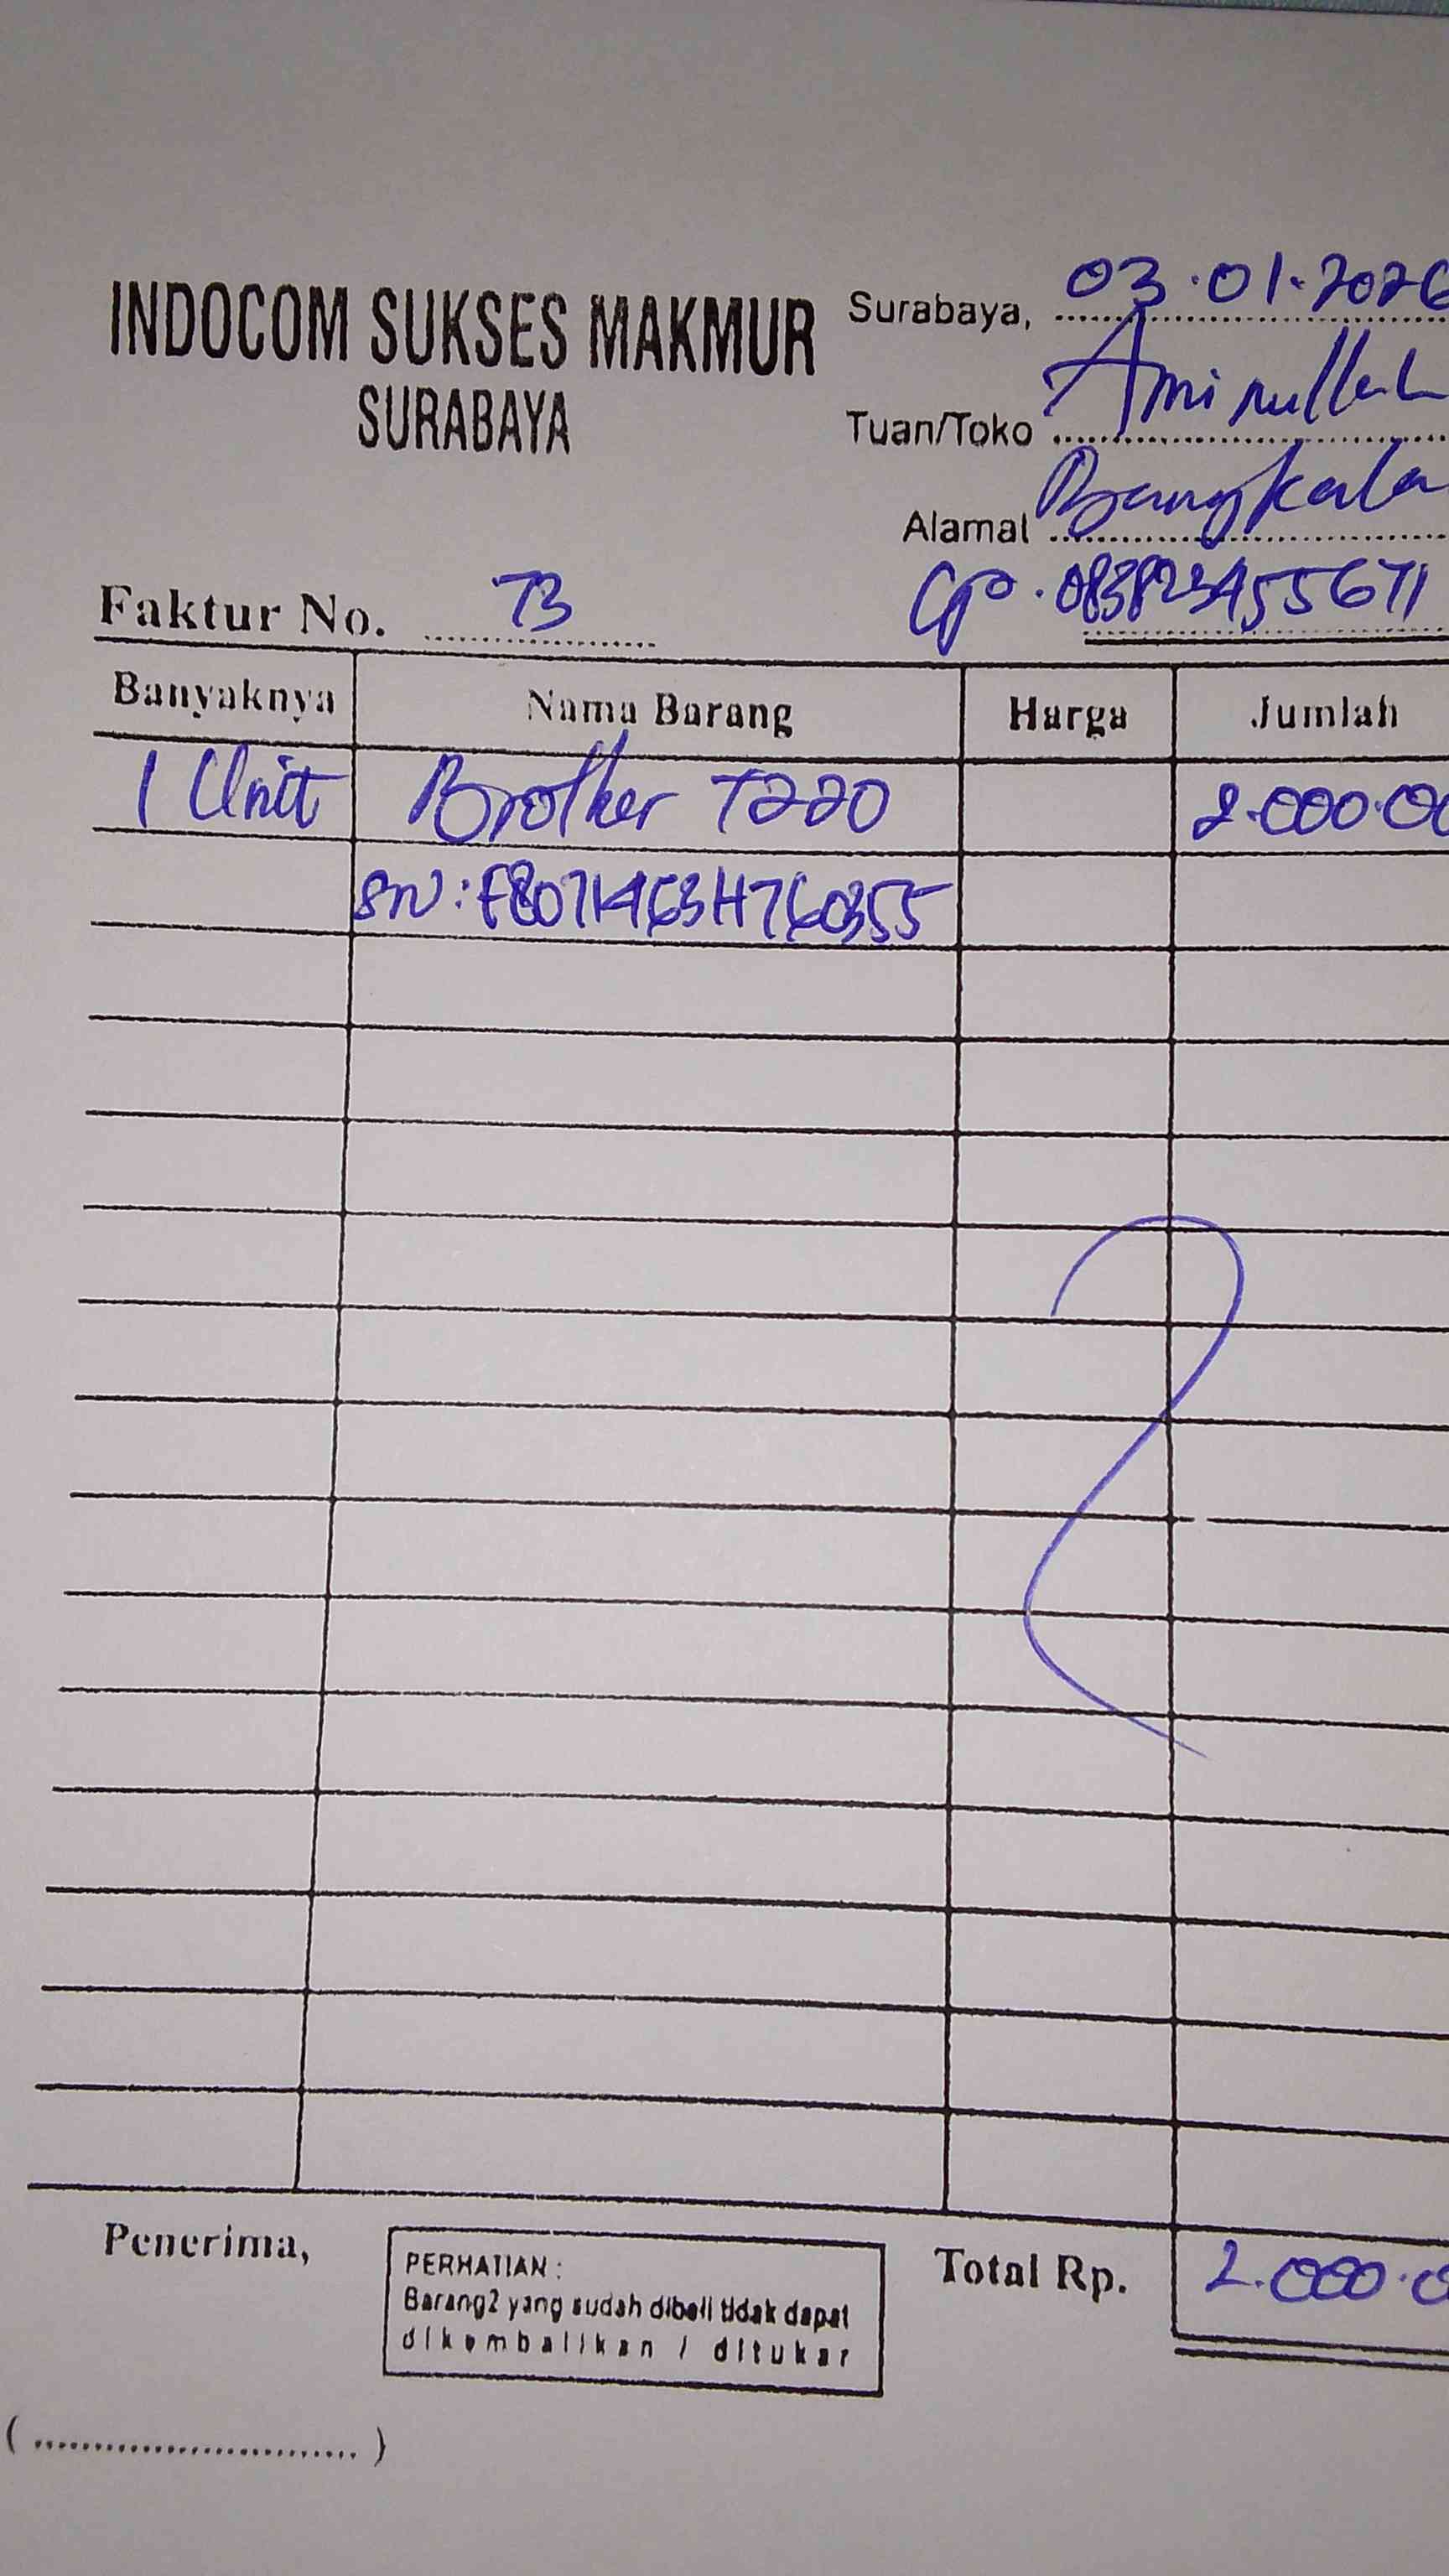 INDOCOM SUKSES MAKMUR
SURABAYA
Surabaya, 03.01.2026
Tuan/Toko Aminullah
Alamat Bangkala
Faktur No. 73
CP. 083823455671
Banyaknya Nama Barang Harga Jumlah
1 Unit Brother T220 2.000.00
SN: E80714G3H760355
Penerima,
PERHATIAN :
Barang2 yang sudah dibeli tidak dapat
dikembalikan / ditukar
Total Rp. 2.000.0
(............................)